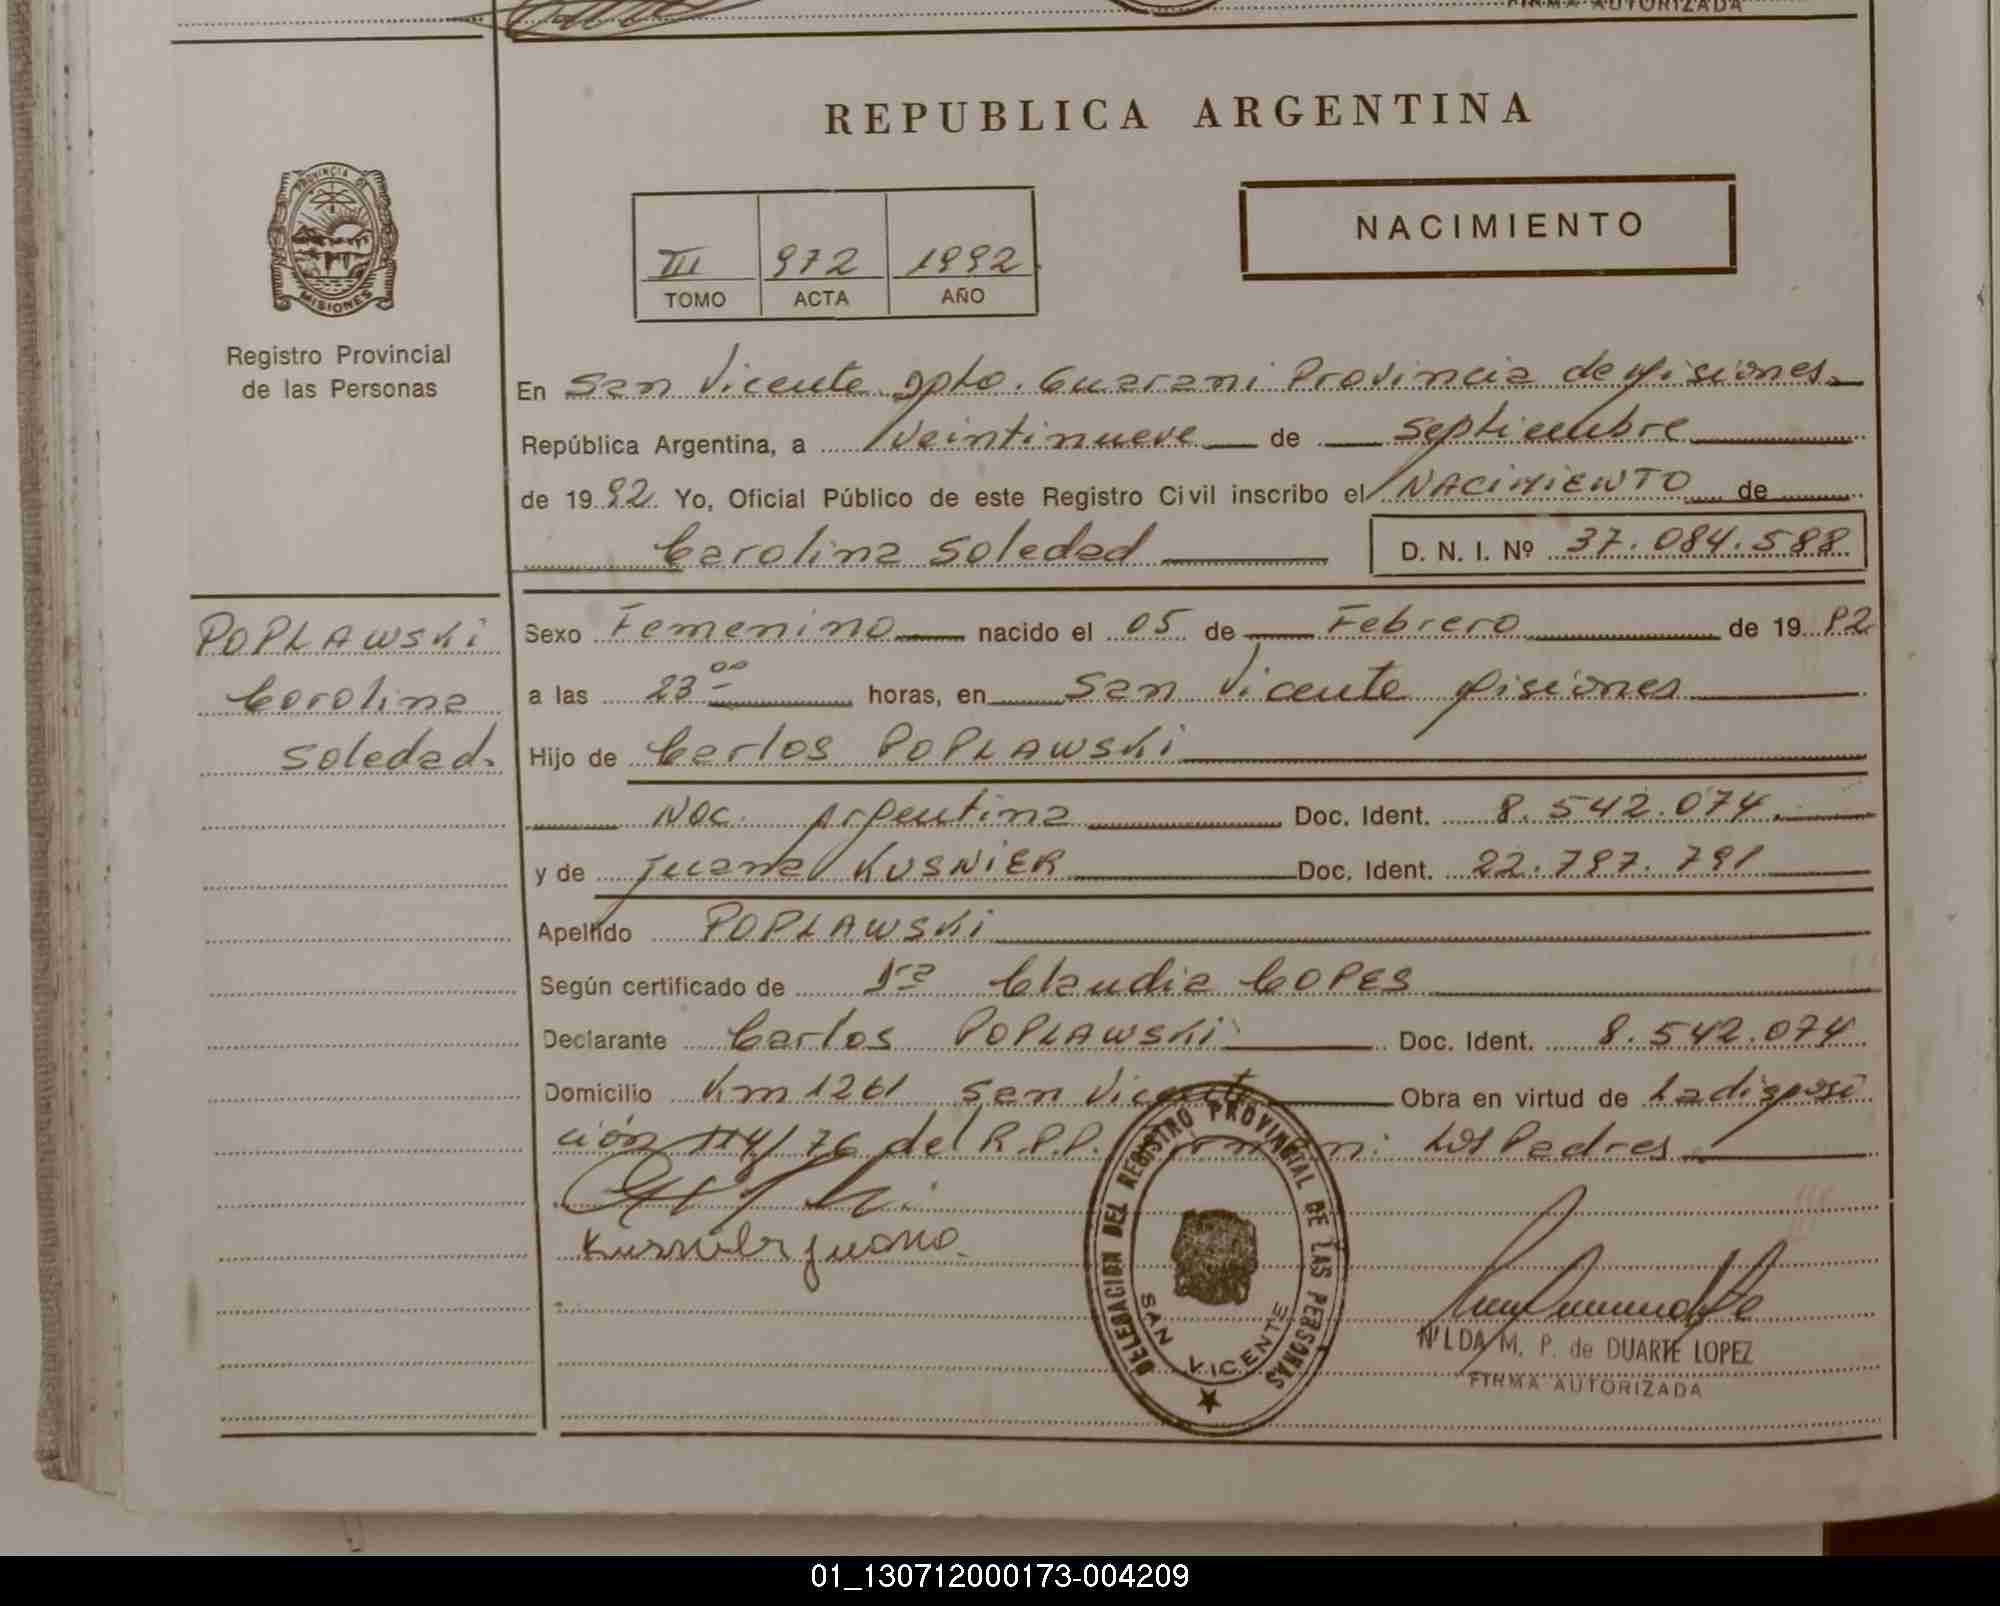 FIRMA AUTORIZADA
REPUBLICA ARGENTINA
NACIMIENTO
PROVINCIA DE
MISIONES
III 972 1992
TOMO ACTA AÑO
Registro Provincial
de las Personas
En San Vicente Dpto. Guarani Provincia de Misiones
República Argentina, a Veintinueve de Septiembre
de 1992 Yo, Oficial Público de este Registro Civil inscribo el NACIMIENTO de
Carolina Soledad D. N. I. Nº 37.084.588
POPLAWSKI
Carolina
Soledad.
Sexo Femenino nacido el 05 de Febrero de 1992
a las 23⁰⁰ horas, en San Vicente Misiones
Hijo de Carlos POPLAWSKI
Nac. Argentina Doc. Ident. 8.542.074
y de Juana KUSNIER Doc. Ident. 22.797.791
Apellido POPLAWSKI
Según certificado de Dra Claudia COPES
Declarante Carlos POPLAWSKI Doc. Ident. 8.542.074
Domicilio Km 1261 San Vicente Obra en virtud de La disposi
ción 114/76 del R.P.P. Los Padres
Kusnier Juana.
DELEGACION DEL REGISTRO PROVINCIAL DE LAS PERSONAS
SAN VICENTE
NILDA M. P. de DUARTE LOPEZ
FIRMA AUTORIZADA
01_130712000173-004209